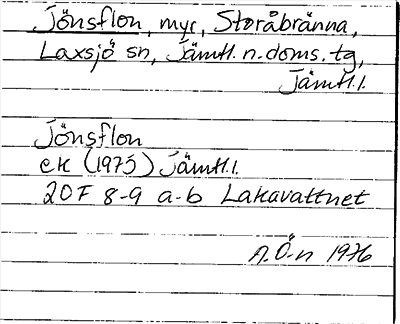 Jönsflon, myr, Storåbränna,
Laxsjö sn, Jämtl. n. doms. tg,
Jämtl. l.
Jönsflon
ek (1975) Jämtl. l.
20F 8-9 a-b Lakavattnet
A. Ö-n 1976